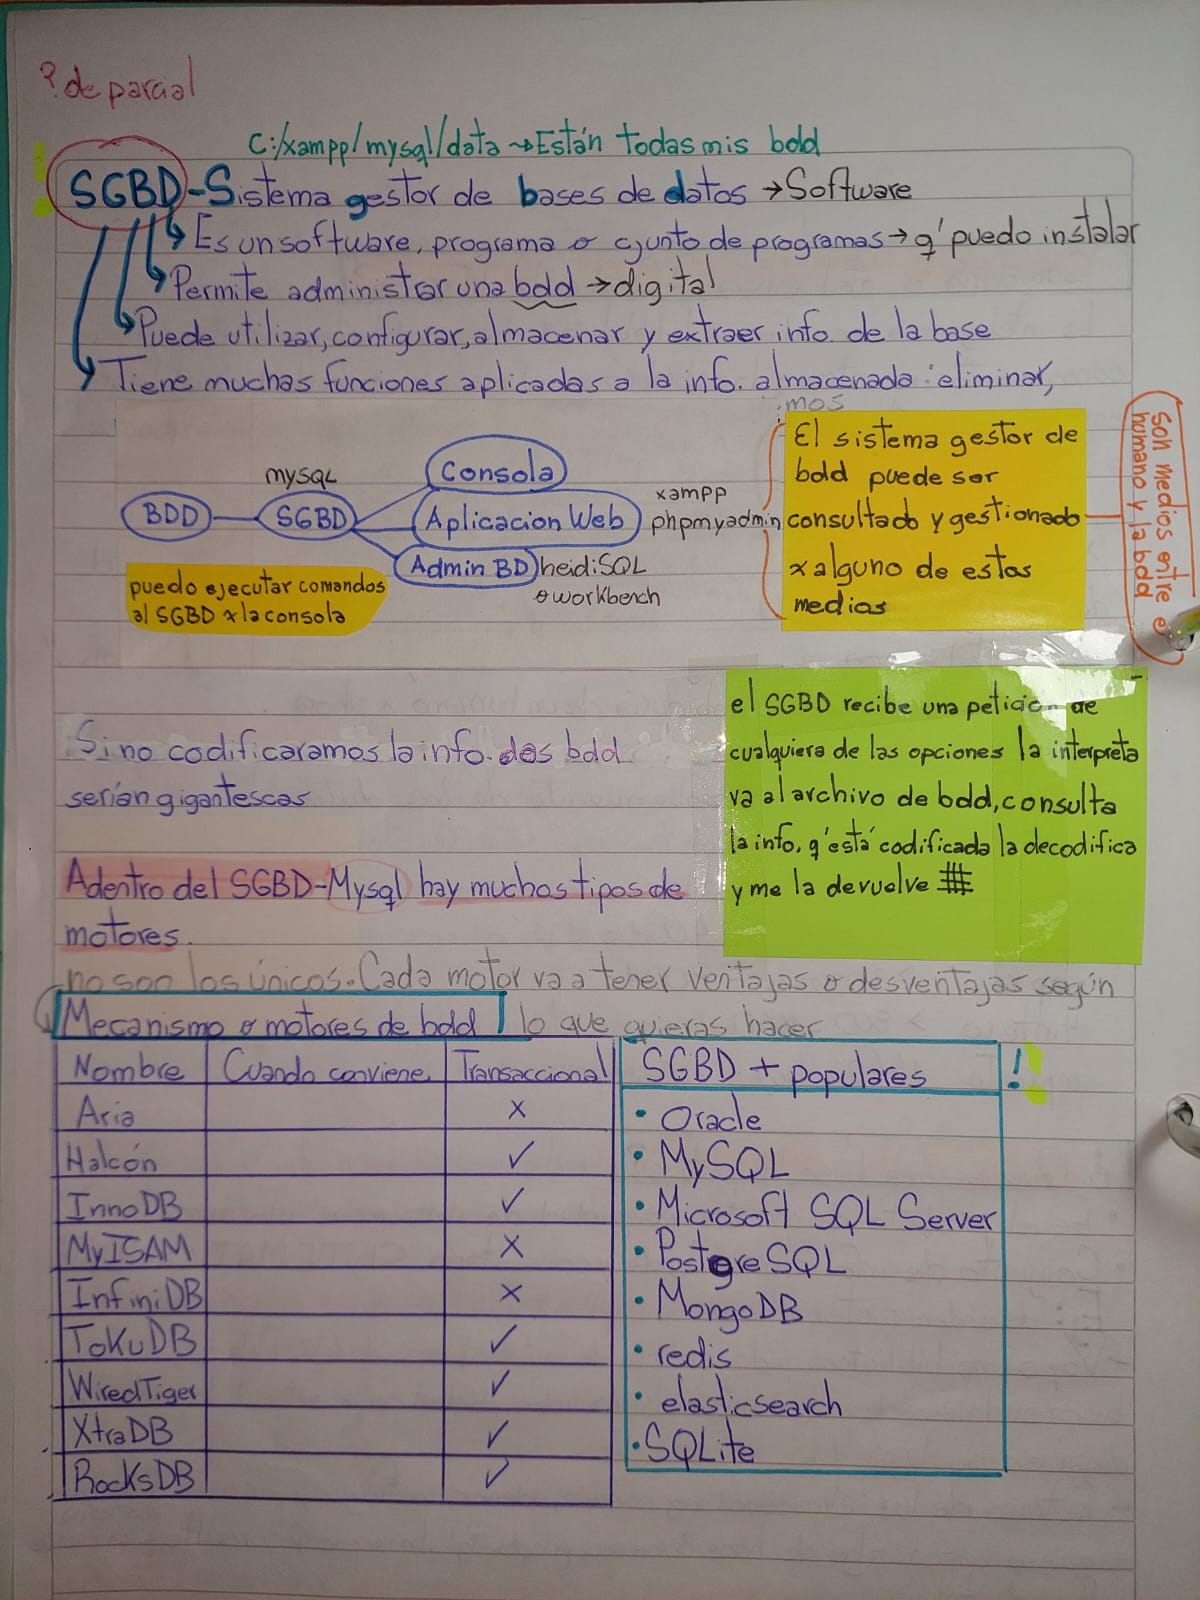 ? de parcial
C:/xampp/mysql/data → Están todas mis bdd
SGBD - Sistema gestor de bases de datos → Software
Es un software, programa o cjunto de programas → q' puedo instalar
Permite administrar una bdd → digital
Puede utilizar, configurar, almacenar y extraer info. de la base
Tiene muchas funciones aplicadas a la info. almacenada: eliminar,
mos
mysql
BDD
SGBD
Consola
Aplicacion Web
Admin BD
xampp
phpmyadmin
heidiSQL
o workbench
puedo ejecutar comandos
al SGBD x la consola
El sistema gestor de
bdd puede ser
consultado y gestionado
x alguno de estos
medios
Son medios entre el
humano y la bdd
el SGBD recibe una peticion de
cualquiera de las opciones la interpreta
va al archivo de bdd, consulta
la info. q' está codificada la decodifica
y me la devuelve
Si no codificaramos la info. das bdd
serían gigantescas
Adentro del SGBD-Mysql hay muchos tipos de
motores.
no son los únicos. Cada motor va a tener ventajas o desventajas según
lo que quieras hacer
Mecanismo o motores de bdd
Nombre Cuando conviene. Transaccional
Aria x
Halcón ✓
InnoDB ✓
MyISAM x
InfiniDB x
TokuDB ✓
WiredTiger ✓
XtraDB ✓
RocksDB ✓
SGBD + populares !
• Oracle
• MySQL
• Microsoft SQL Server
• PostgreSQL
• MongoDB
• redis
• elasticsearch
• SQLite